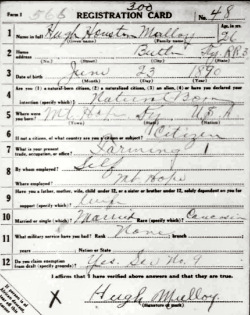 300
Form 1 565 REGISTRATION CARD No. 48
1 Name in full Hugh Houston Mulloy Age, in yrs. 26
2 Home address Butler Ky R.R.3
3 Date of birth June 23 1890
(Month) (Day) (Year)
4 Are you (1) a natural-born citizen, (2) a naturalized citizen, (3) an alien, (4) or have you declared your
intention (specify which)? Natural Born
5 Where were you born? Mt Hope U S A
6 If not a citizen, of what country are you a citizen or subject? Citizen
7 What is your present trade, occupation, or office? Farming 1
8 By whom employed? Self
Where employed? Mt Hope
9 Have you a father, mother, wife, child under 12, or a sister or brother under 12, solely dependent on you for
support (specify which)? wife
10 Married or single (which)? Married Race (specify which)? Caucasian
11 What military service have you had? Rank None branch
years Nation or State
12 Do you claim exemption from draft (specify grounds)? Yes. See No. 9
I affirm that I have verified above answers and that they are true.
X Hugh Mulloy
(Signature or mark)